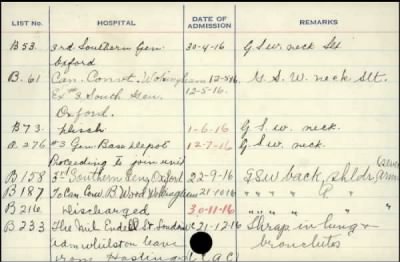 LIST No. HOSPITAL DATE OF ADMISSION REMARKS
B53. 3rd Southern Gen 30-4-16 G.S.W. neck Slt
Oxford
B.61 Can. Convt. Wokingham 12-5-16. G.S.W. neck Slt.
Ex #3 South Gen. 12-5-16.
Oxford.
B73. Disch 1-6-16 G.S.W. neck.
A276 #3 Gen Base Depot 12-7-16 G.S.W. neck.
Proceeding to join unit
B158 3rd Southern Gen, Oxford 22-9-16 GSW back, shldr, arm
B187 To Can. Con. B. Wood Wokingham 21-10-16 " " " "
B216 Discharged 30-11-16 " " " "
B233 The Mil. Endell St. London WC 21-12-16 Shrap in lung &
adm whilst on leave bronchitis
from Hastings (C.A.C.)